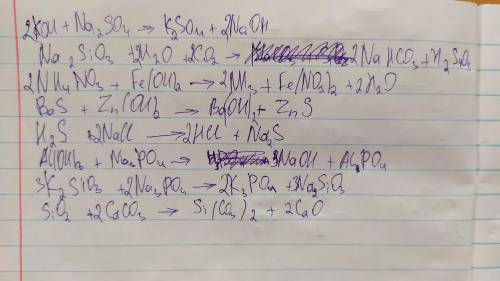 2KOH + Na2SO4 → K2SO4 + 2NaOH
Na2SiO3 + 2H2O + 2CO2 → 2NaHCO3 + H2SiO3
2NH4NO3 + Fe(OH)2 → 2NH3 + Fe(NO3)2 + 2H2O
BaS + Zn(OH)2 → Ba(OH)2 + ZnS
H2S + 2NaCl → 2HCl + Na2S
Al(OH)3 + Na3PO4 → 3NaOH + AlPO4
3K2SiO3 + 2Na3PO4 → 2K3PO4 + 3Na2SiO3
SiO2 + 2CaCO3 → Si(CO3)2 + 2CaO